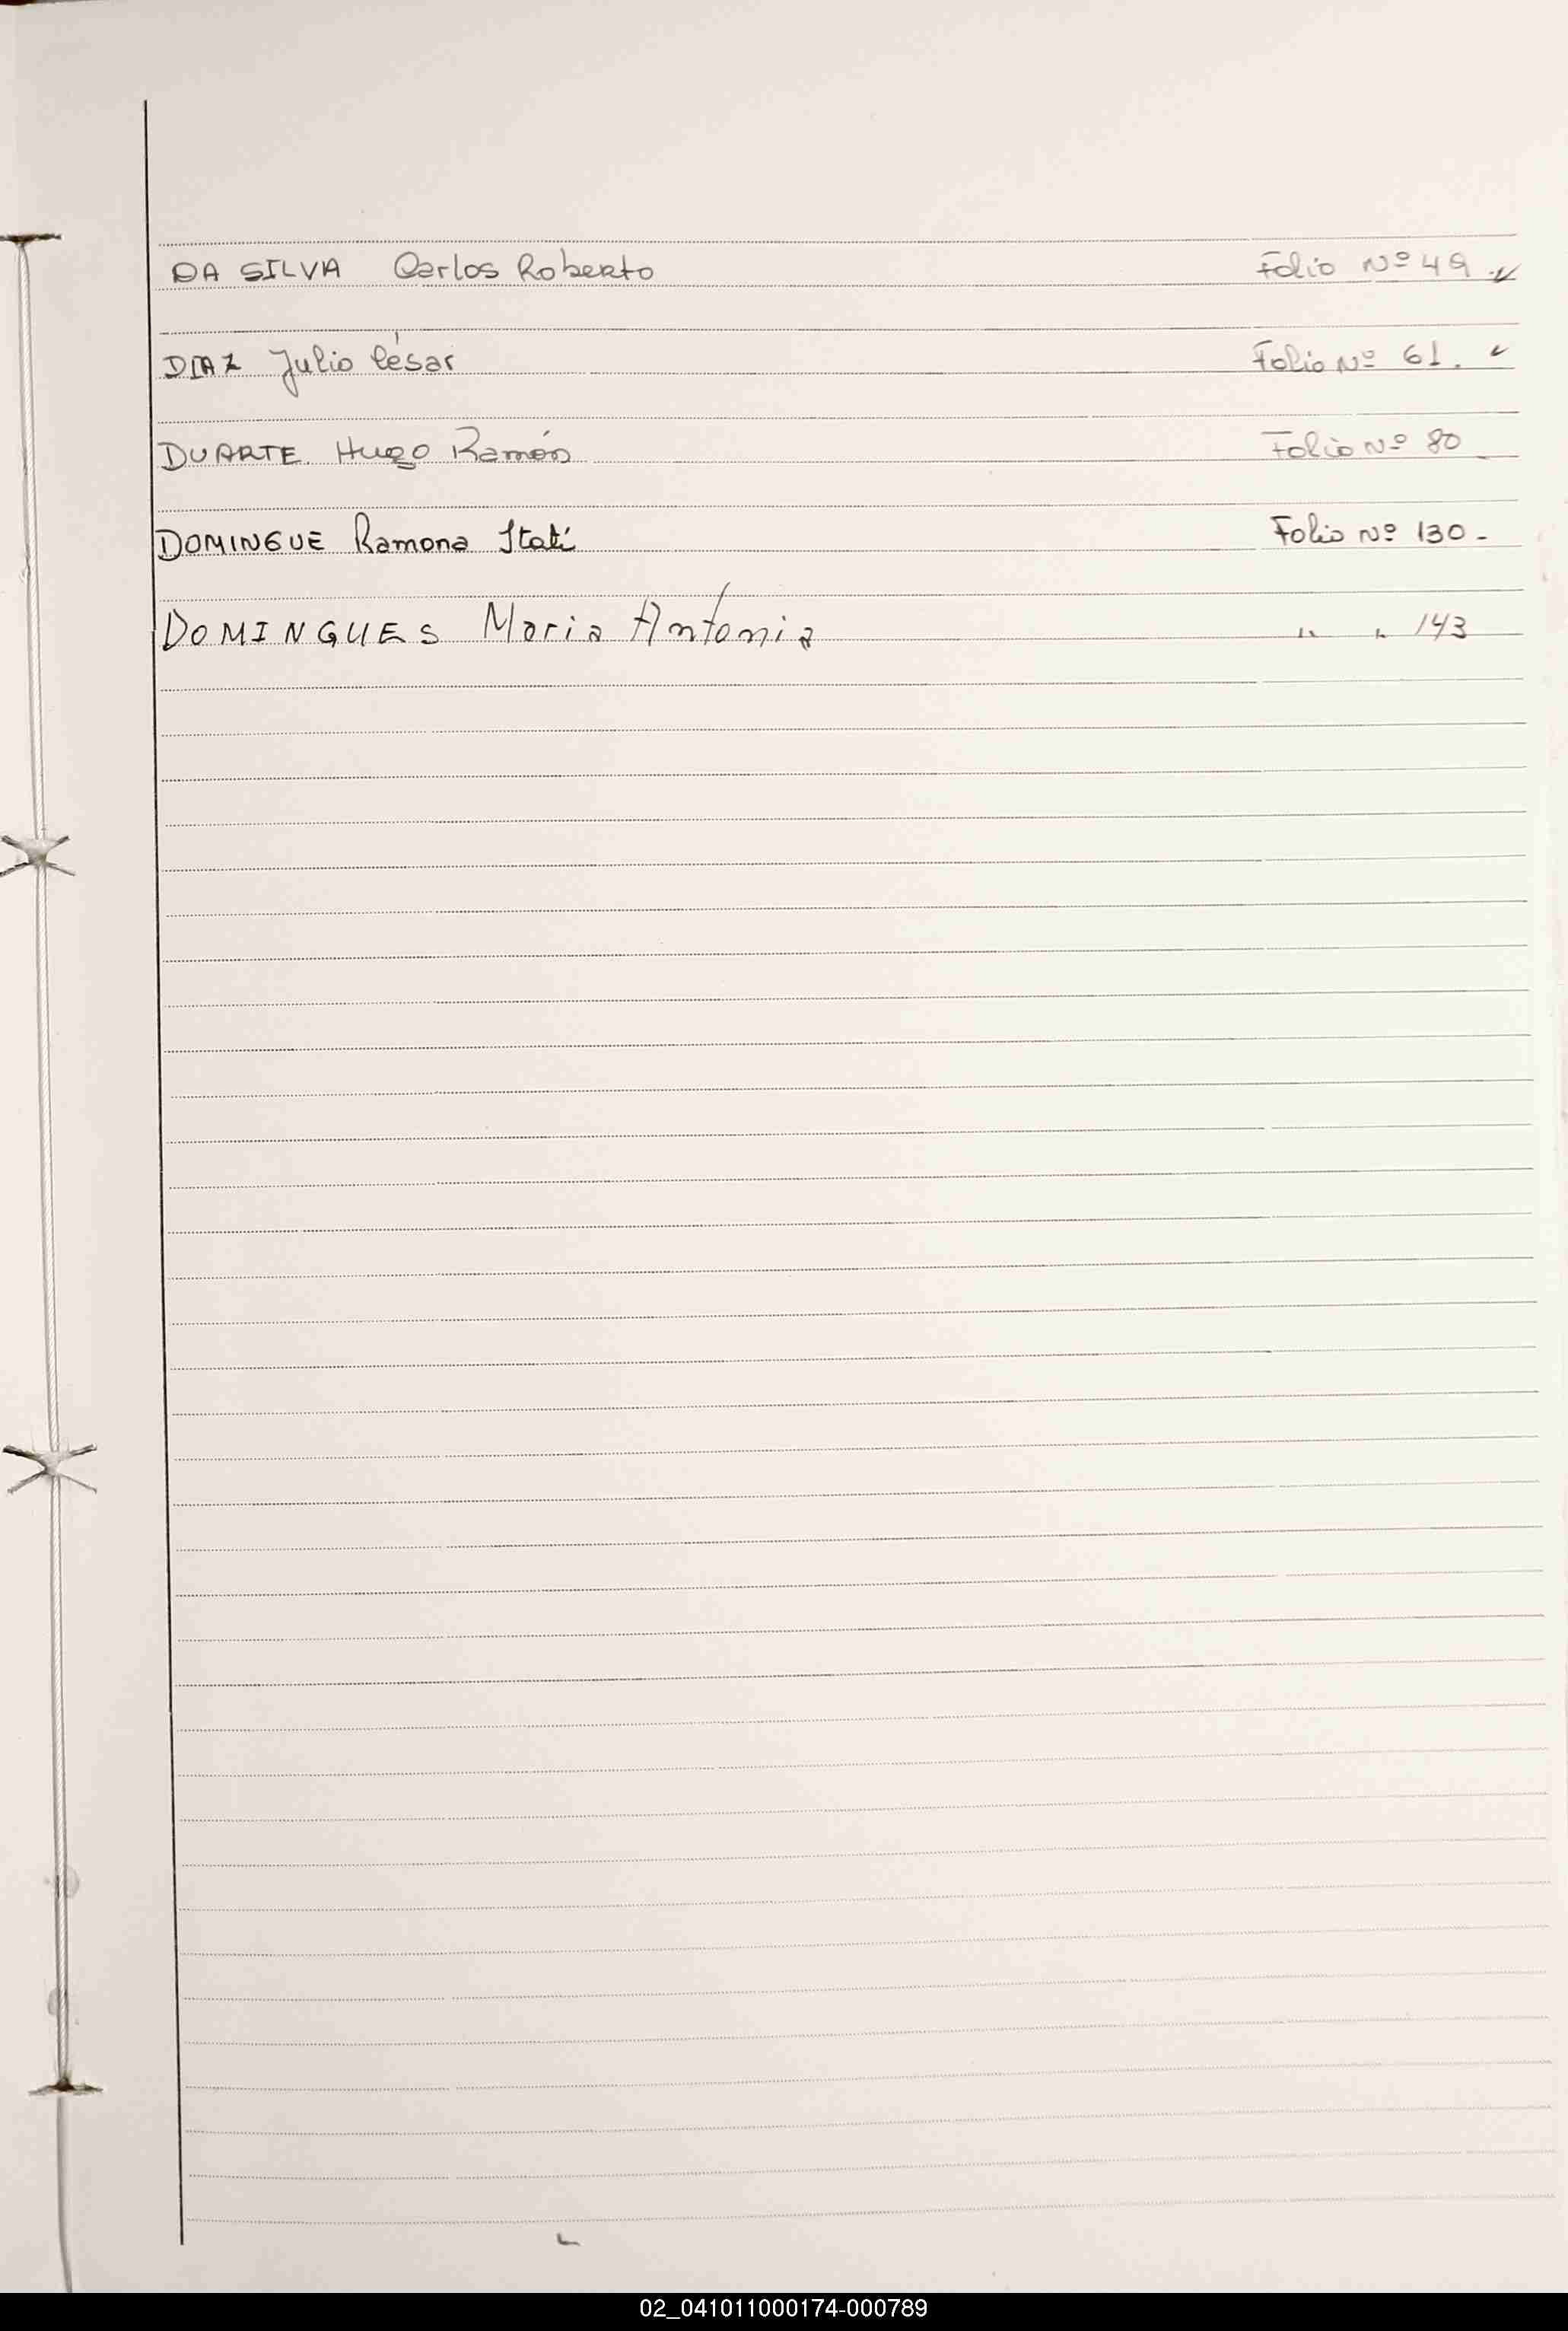 DA SILVA Carlos Roberto Folio Nº 49
DIAZ Julio César Folio Nº 61.
DUARTE Hugo Ramón Folio Nº 80
DOMINGUE Ramona Itatí Folio Nº 130-
DOMINGUES Maria Antonia " " 143
02_041011000174-000789